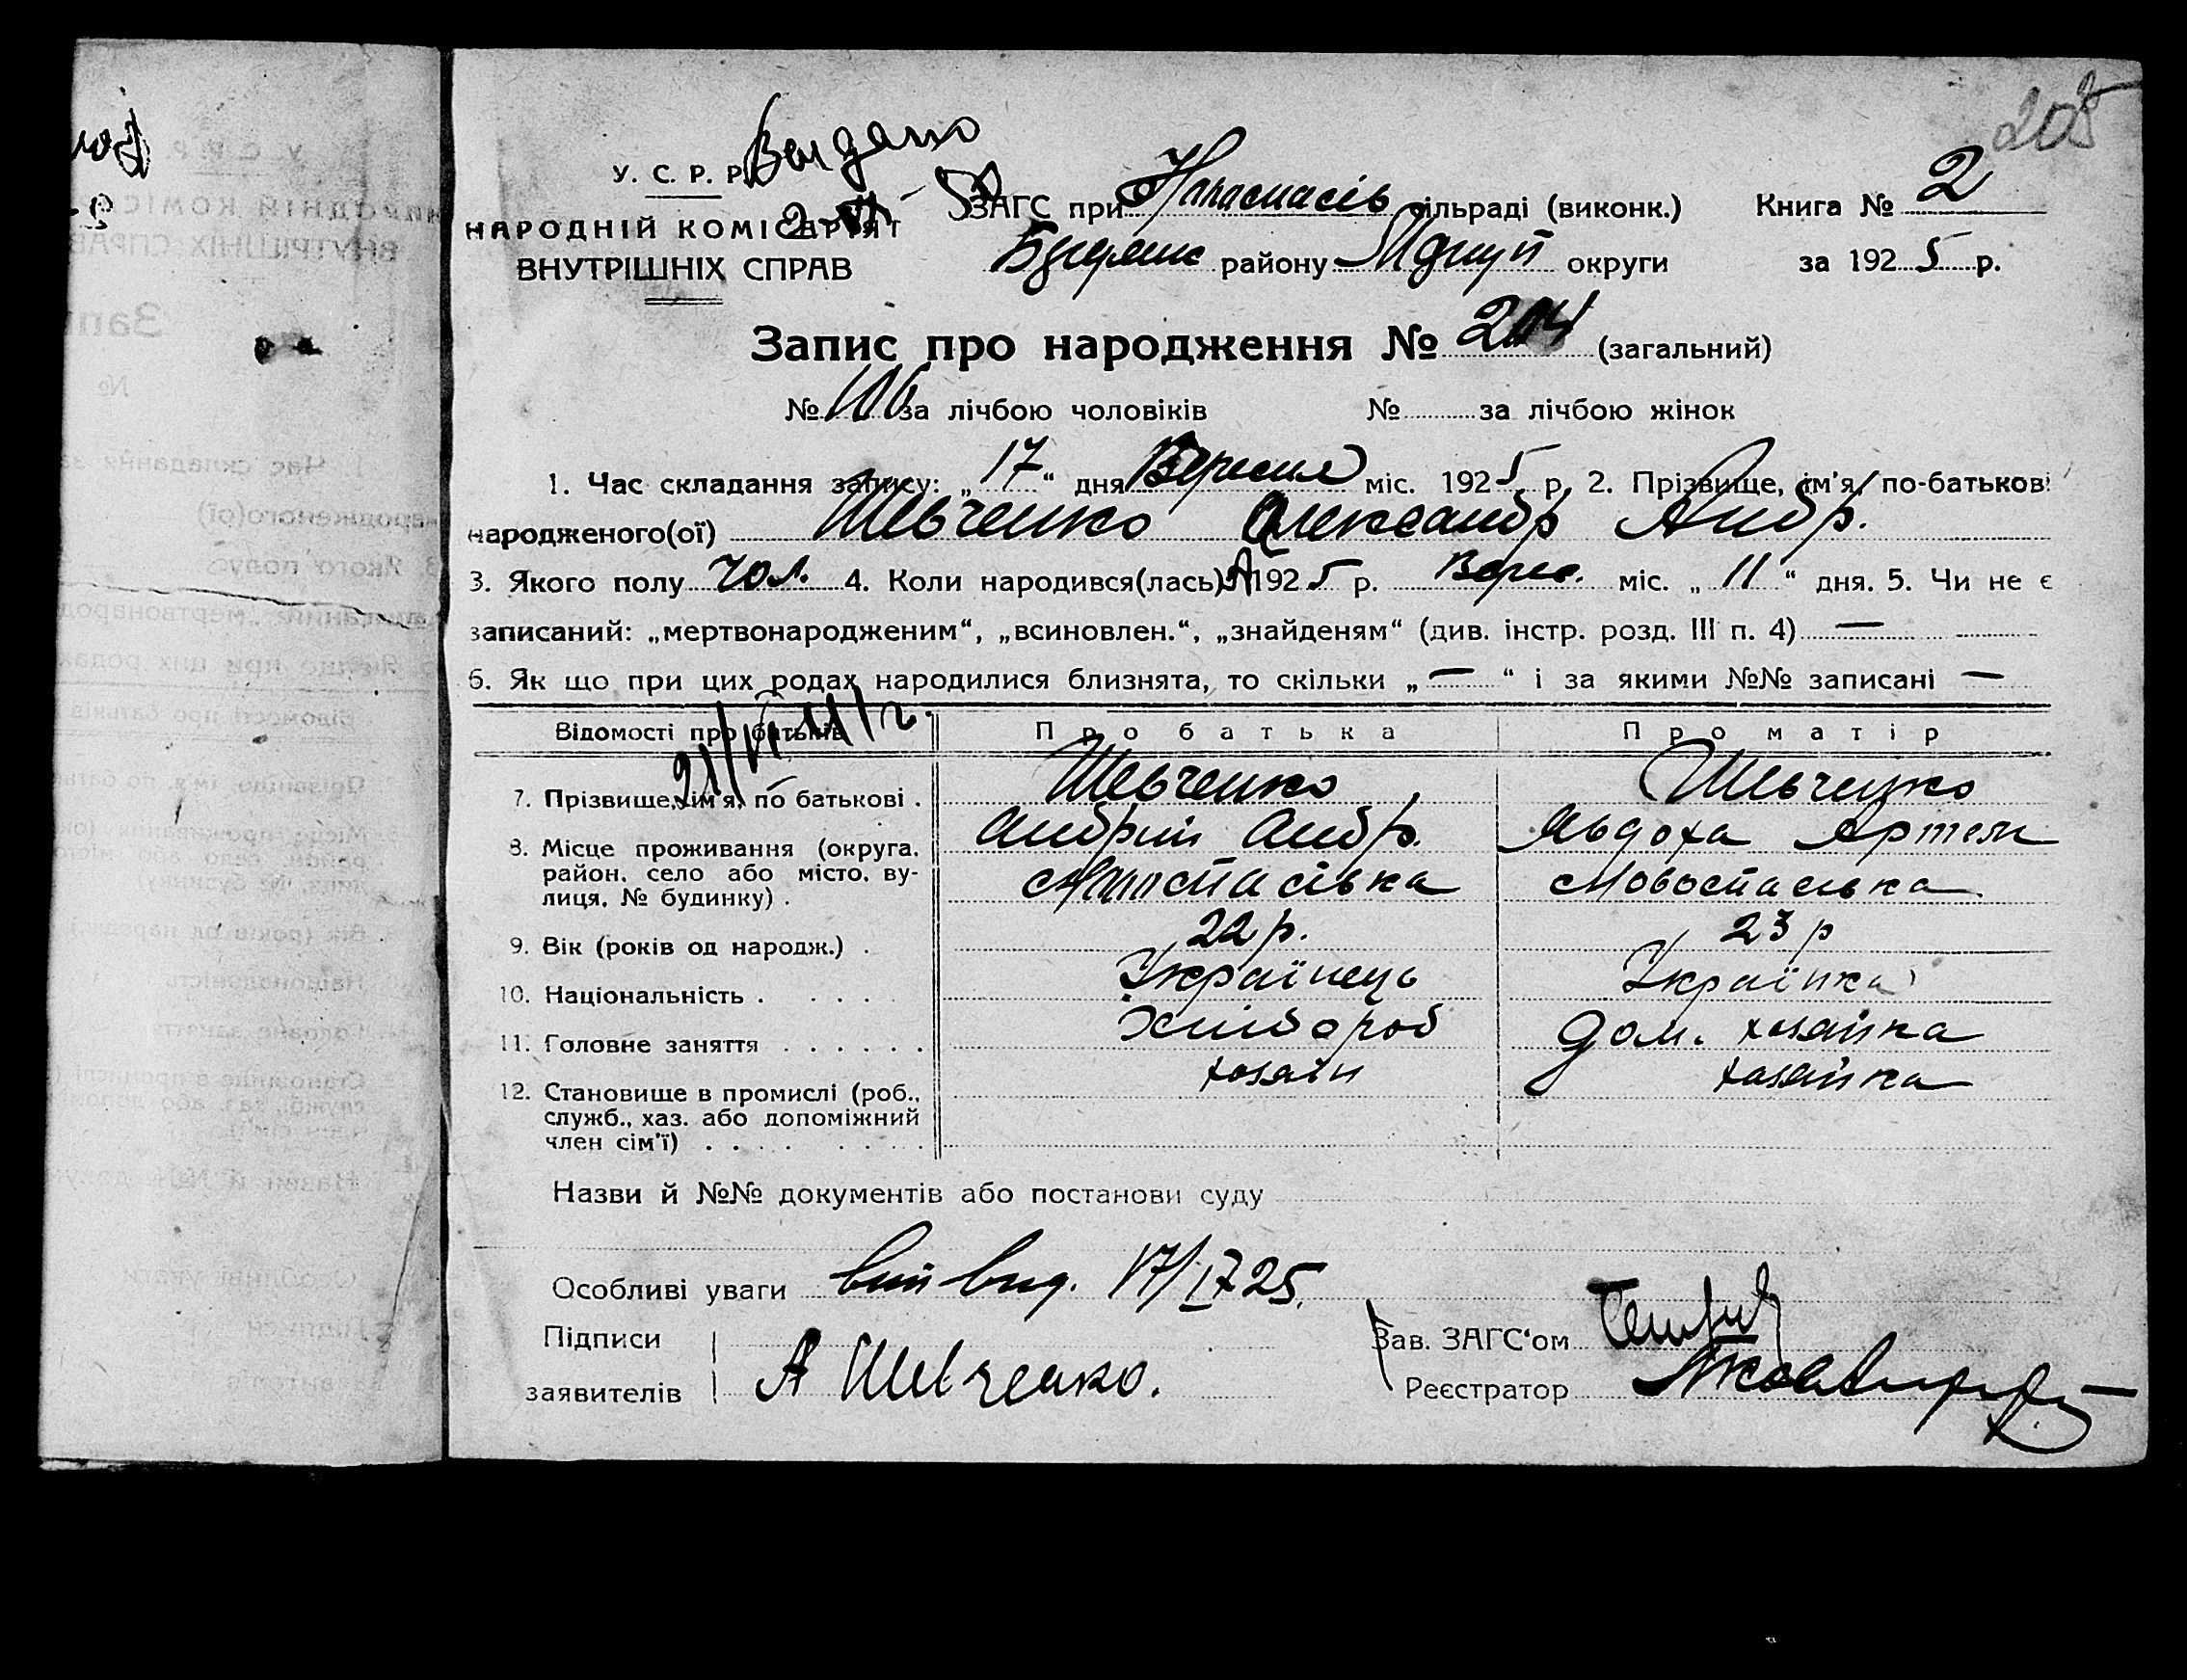 205
У. С. Р. Р.
НАРОДНІЙ КОМІСАРІЯТ
ВНУТРІШНІХ СПРАВ
ЗАГС при сільраді (виконк.) Книга № 2
району округи за 1925 р.
Запис про народження № 204 (загальний)
№ 106 за лічбою чоловіків № за лічбою жінок
1. Час складання запису: „17“ дня Вересня міс. 1925 р. 2. Прізвище, ім'я, по-батькові
народженого(ої) Шевченко Олександр Андр.
3. Якого полу чол. 4. Коли народився(лась) 1925 р. Верес. міс. „11“ дня. 5. Чи не є
записаний: „мертвонародженим“, „всиновлен.“, „знайденям“ (див. інстр. розд. III п. 4) —
6. Як що при цих родах народилися близнята, то скільки „—“ і за якими №№ записані —
Відомості про батьків Про батька Про матір
7. Прізвище, ім'я, по батькові . Шевченко Шевченко
Андрій Андр. Явдоха Артем
8. Місце проживання (округа, район, село або місто, вулиця, № будинку) . Новоспасівка
9. Вік (років од народж.) . 22 р. 23 р
10. Національність . Українець Українка
11. Головне заняття Хлібороб Дом. хазяйка
12. Становище в промислі (роб., служб., хаз. або допоміжний член сім'ї) хазяїн хазяйка
Назви й №№ документів або постанови суду
Особливі уваги вид. 17/IX 25.
Підписи Зав. ЗАГС'ом
заявителів А Шевченко. Реєстратор